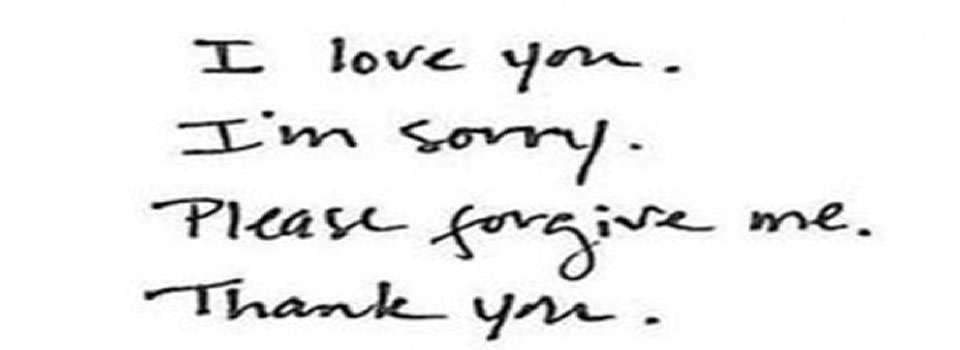 I love you.
I'm sorry.
Please forgive me.
Thank you.